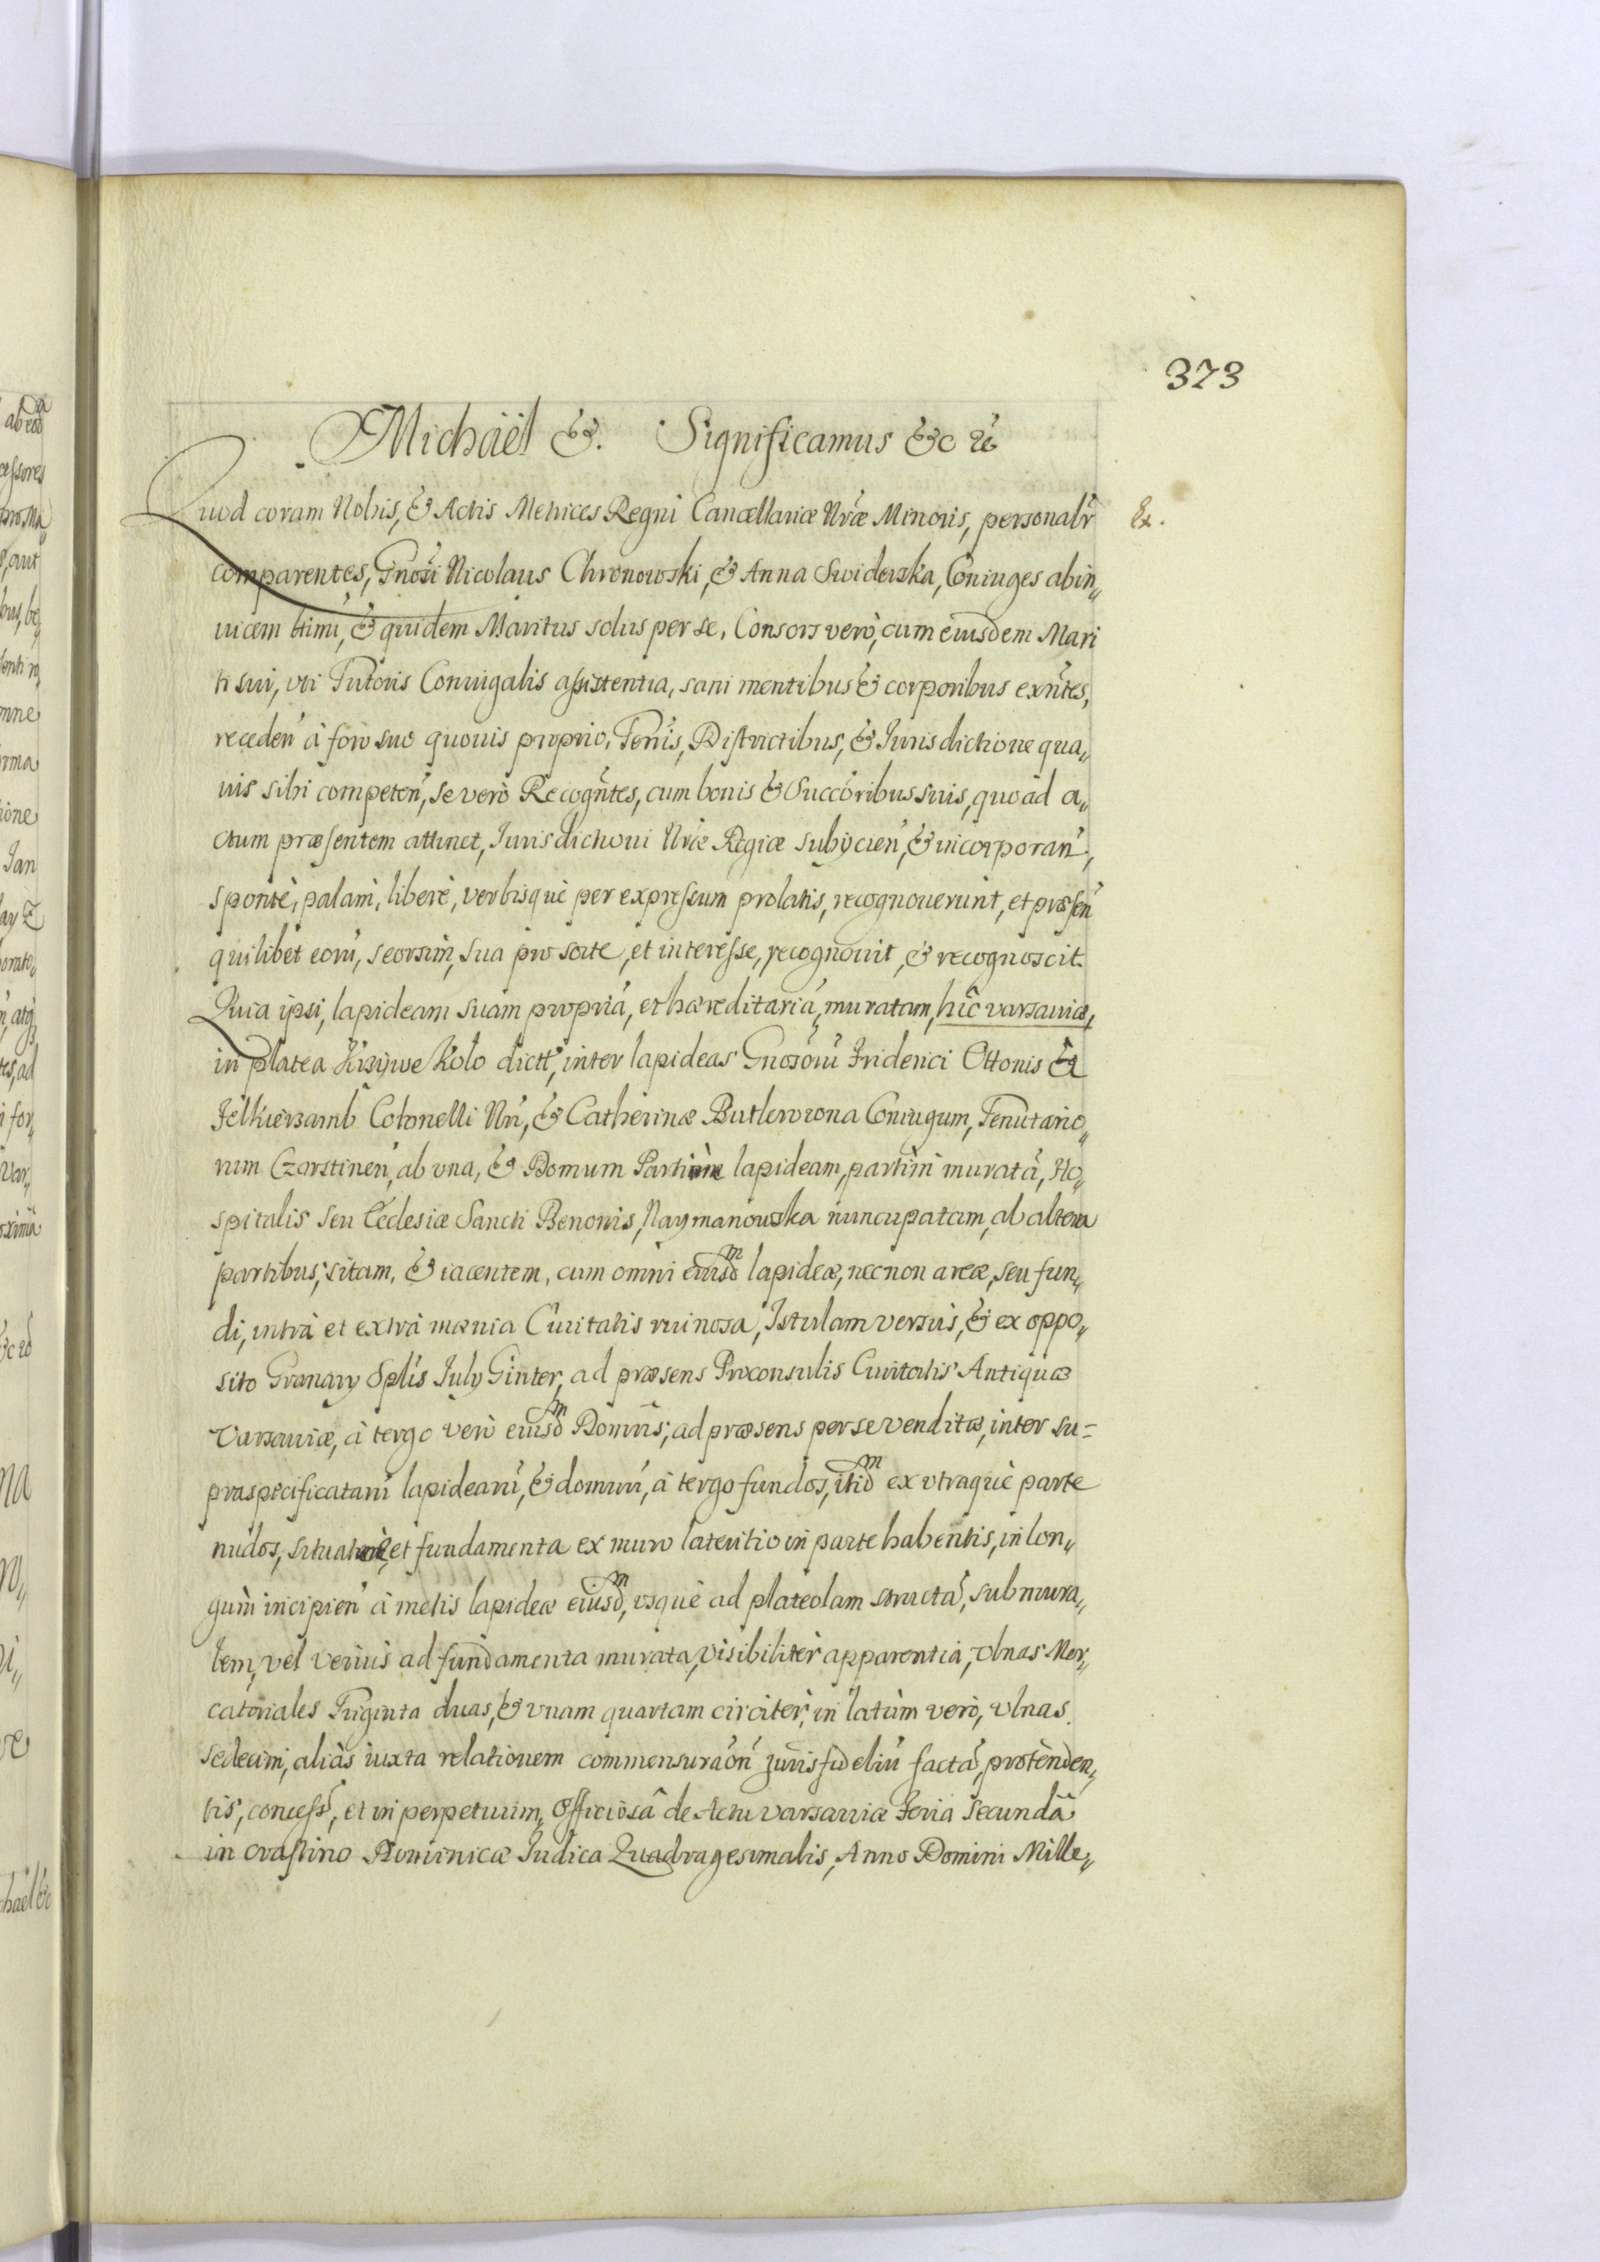 373
Michaël &. Significamus &c rc
Quod coram Nobis, & Actis Metrices Regni Cancellariæ Nræ Minoris, personalr̃ Ex.
comparentes, Gnosi Nicolaus Chronowski, & Anna Swiderska, Coniuges abin„
uicem ltimi, & quidem Maritus solus per se, Consors verò, cum eiusdem Mari
ti sui, vti Tutoris Coniugalis assistentia, sani mentibus & corporibus exñtes,
receden̕ à foro suo quouis proprio, Terris, Districtibus, & Iurisdictione qua„
uis sibi competen̕, se verò Recogñtes, cum bonis & Succõribus suis, quo ad a„
ctum præsentem attinet, Iurisdictioni Nræ Regiæ subijcien̕, & incorporan̕,
spontè, palàm, liberè, verbisquè per expressum prolatis, recognouerunt, et præsen̕
quilibet eorũ, seorsìm, sua pro sorte, et interesse, recognouit, & recognoscit.
Quia ipsi, lapideam suam propriã, et hæreditariã, muratam, hîc varsauiæ,
in platea Krzywe Kolo dictt̕, inter lapideas Gnosorũ Friderici Ottonis et
Felkiersamb Colonelli Nri, & Catherinæ Butlerowna Coniugum, Tenutario„
rum Czorstinen̕, ab vna, & Domum Partim lapideam, partìm muratã, Ho„
spitalis seu Ecclesiæ Sancti Benonis, Naymanowska nuncupatam, ab altera
partibus, sitam, & iacentem, cum omni eiusdm lapideæ, necnon areæ, seu fun„
di, intrà et extrà mænia Ciuitatis ruinosa, Istulam versùs, & ex oppo„
sito Granarij Splis Iulij Ginter, ad præsens Proconsulis Ciuitatis Antiquæ
Varsauiæ, à tergo verò eiusdm Domûs, ad præsens per se venditæ, inter su=
praspecificatam lapideam, & domum, à tergo fundos, itidm ex vtraquè parte
nudos, situat et fundamenta ex muro lateritio in parte habentis, in lon„
gùm incipien̕ à metis lapideæ eiusdm, vsquè ad plateolam structã, submura„
lem, vel veriùs ad fundamenta murata, visibilitèr apparentia, vlnas Mer„
catoriales Triginta duas, & vnam quartam circitèr, in latùm verò, vlnas
sedecim, aliàs iuxta relationem commensurãon̕ iuris fideliũ factã, protènden„
tis, concess̃, et in perpetuum, Officiosã de Actu varsauiæ Feria Secundã
in crastino Dominicæ Iudica Quadragesimalis, Anno Domini Mille„